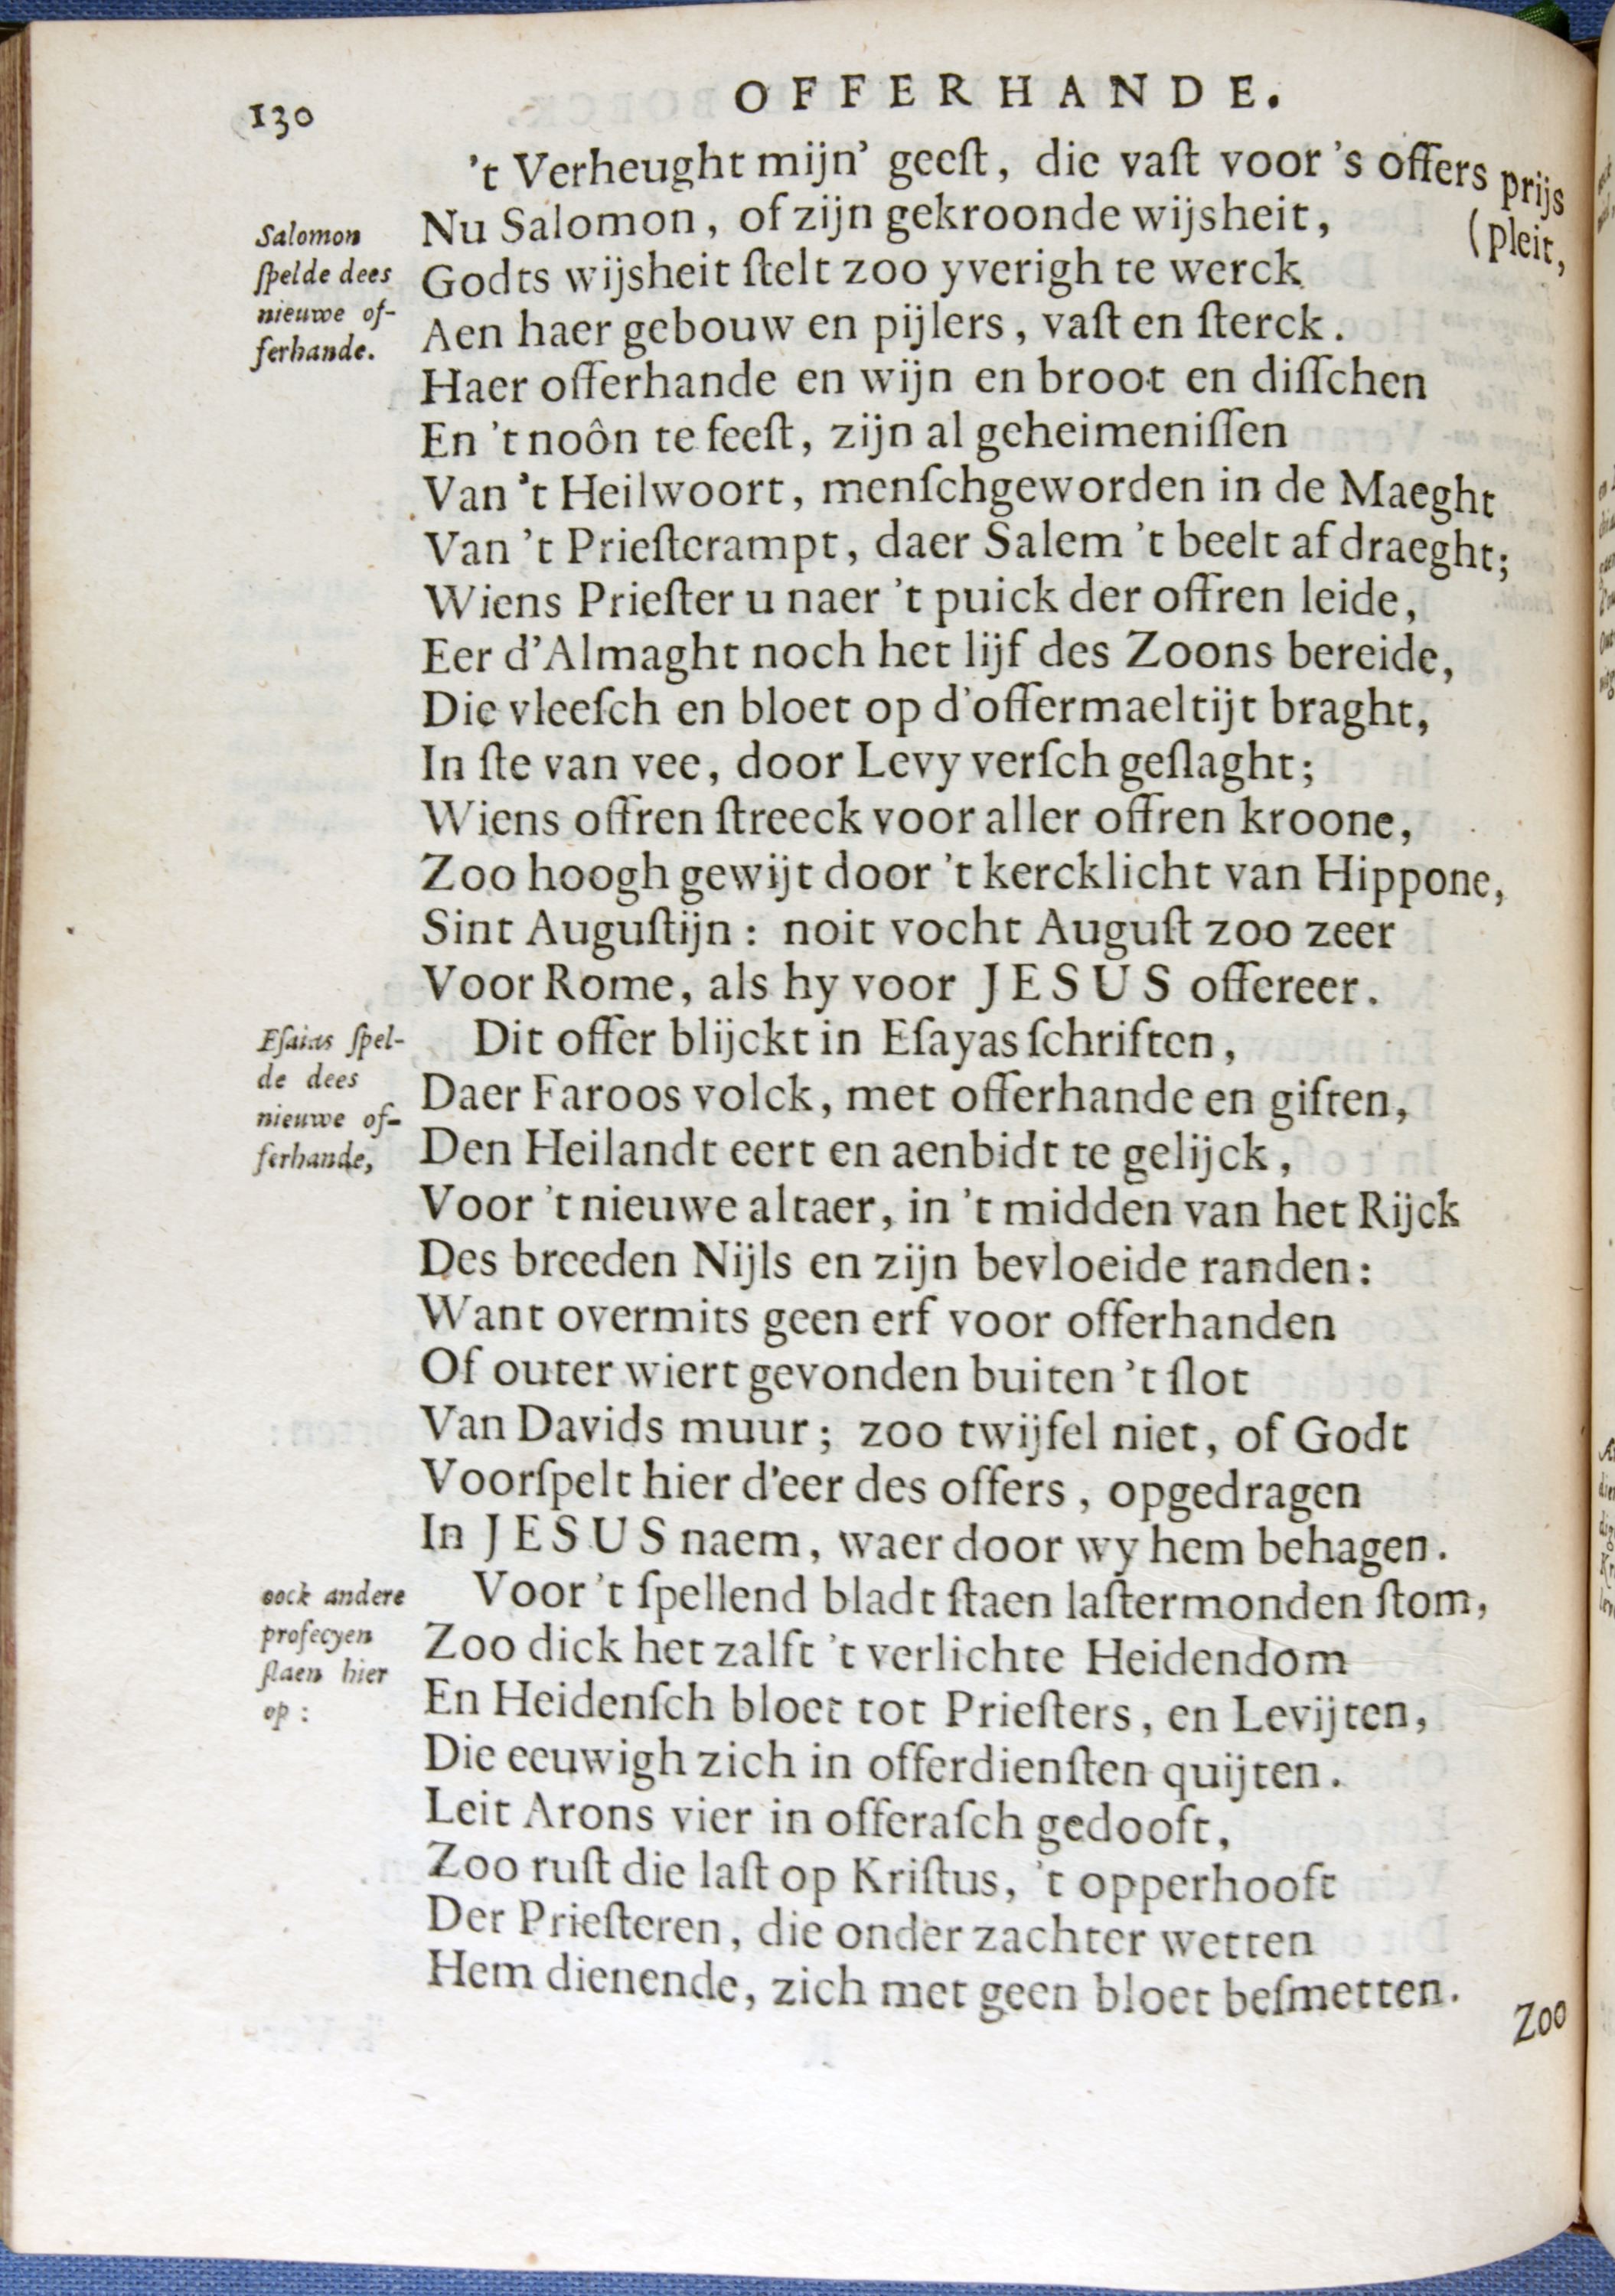 130
OFFERHANDE.
't Verheught mijn' geeſt, die vaſt voor 's offers prijs
(pleit,
Nu Salomon, of zijn gekroonde wijsheit,
Godts wijsheit ſtelt zoo yverigh te werck
Aen haer gebouw en pijlers, vaſt en ſterck.
Haer offerhande en wijn en broot en diſſchen
En 't noôn te feeſt, zijn al geheimeniſſen
Van 't Heilwoort, menſchgeworden in de Maeght
Van 't Prieſterampt, daer Salem 't beelt af draeght;
Wiens Prieſter u naer 't puick der offren leide,
Eer d'Almaght noch het lijf des Zoons bereide,
Die vleeſch en bloet op d'offermaeltijt braght,
In ſte van vee, door Levy verſch geſlaght;
Wiens offren ſtreeck voor aller offren kroone,
Zoo hoogh gewijt door 't kercklicht van Hippone,
Sint Auguſtijn: noit vocht Auguſt zoo zeer
Voor Rome, als hy voor JESUS offereer.
Dit offer blijckt in Eſayas ſchriften,
Daer Faroos volck, met offerhande en giften,
Den Heilandt eert en aenbidt te gelijck,
Voor 't nieuwe altaer, in 't midden van het Rijck
Des breeden Nijls en zijn bevloeide randen:
Want overmits geen erf voor offerhanden
Of outer wiert gevonden buiten 't ſlot
Van Davids muur; zoo twijfel niet, of Godt
Voorſpelt hier d'eer des offers, opgedragen
In JESUS naem, waer door wy hem behagen.
Voor 't ſpellend bladt ſtaen laſtermonden ſtom,
Zoo dick het zalft 't verlichte Heidendom
En Heidenſch bloet tot Prieſters, en Levijten,
Die eeuwigh zich in offerdienſten quijten.
Leit Arons vier in offeraſch gedooft,
Zoo ruſt die laſt op Kriſtus, 't opperhooft
Der Prieſteren, die onder zachter wetten
Hem dienende, zich met geen bloet beſmetten.
Zoo
Salomon
ſpelde dees
nieuwe of-
ferhande.
Eſaias ſpel-
de dees
nieuwe of-
ferhande,
oock andere
profecyen
ſlaen hier
op: